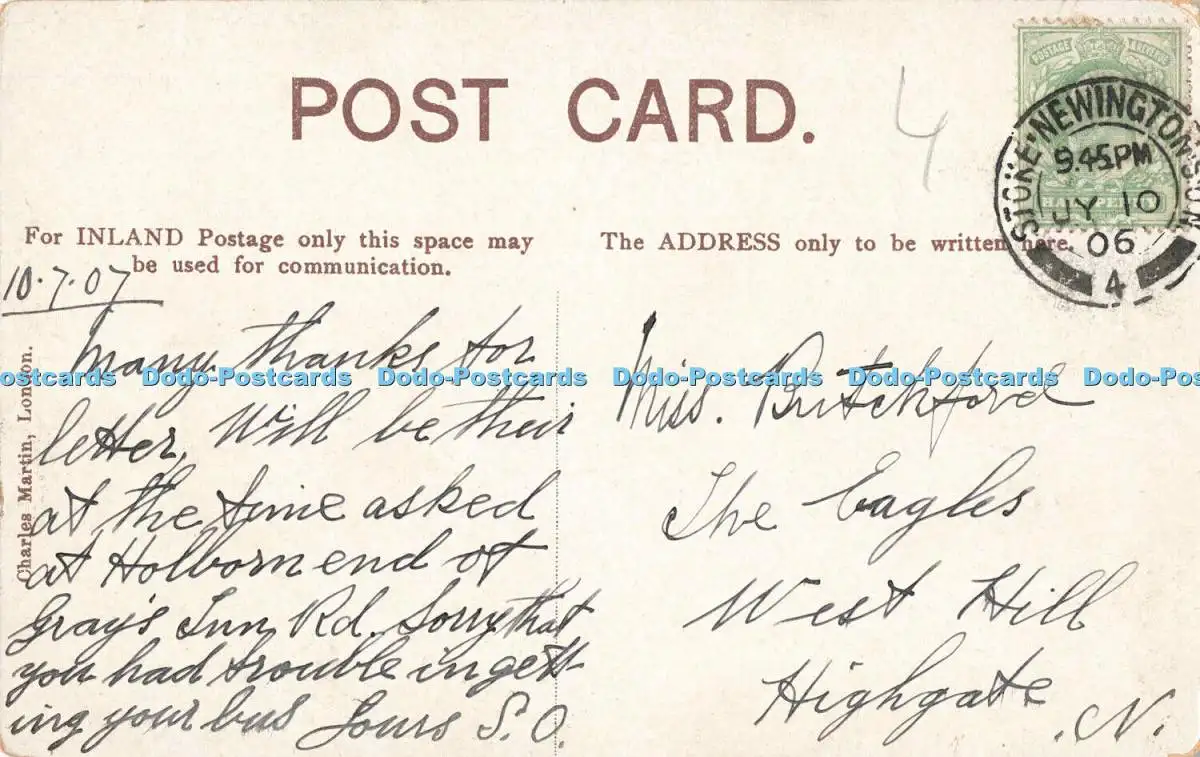 POST CARD.
4
POSTAGE & REVENUE
HALFPENNY
STOKE·NEWINGTON·S.O.
9.45PM
JY 10
06
4
For INLAND Postage only this space may
be used for communication.
The ADDRESS only to be written here.
10.7.07
Many thanks for
letter, Will be their
at the time asked
at Holborn end of
Gray's Inn Rd. Sorry that
you had trouble in gett-
ing your bus Yours S.O.
Charles Martin, London.
Miss. Brutchford
The Eagles
West Hill
Highgate
.N.
Dodo-Postcards Dodo-Postcards Dodo-Postcards Dodo-Postcards Dodo-Postcards Dodo-Postcards